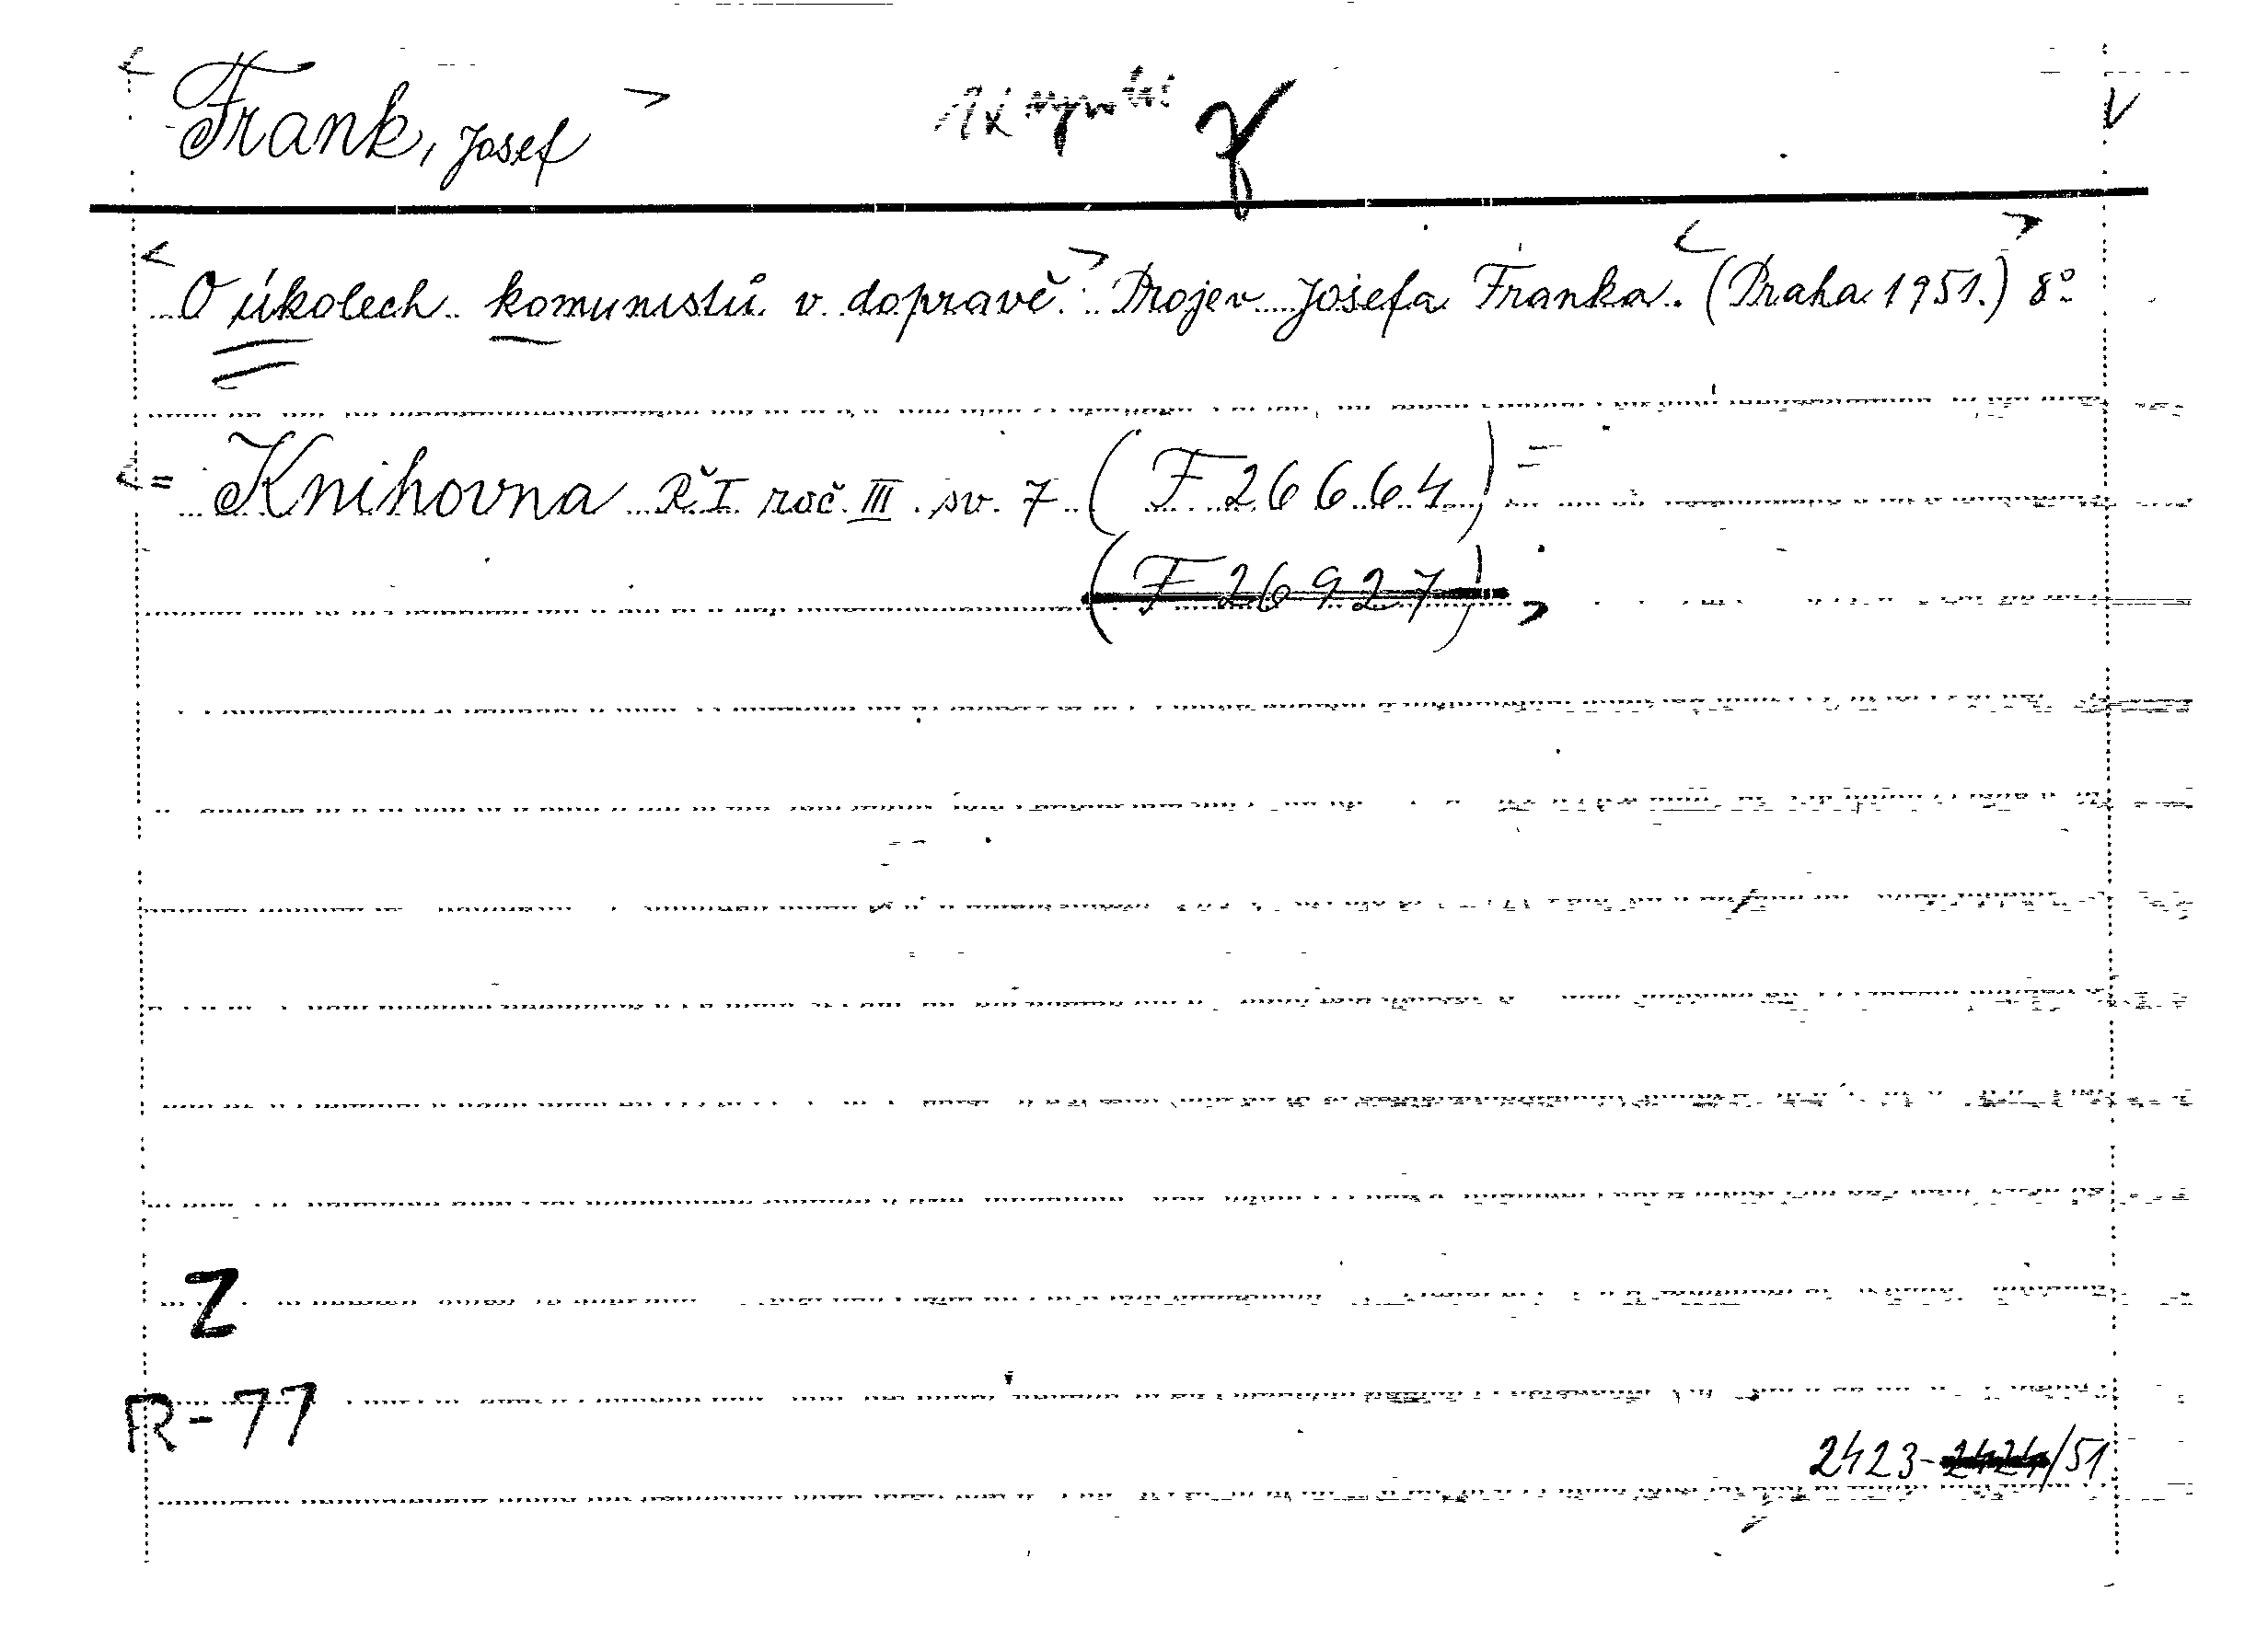 Frank, Josef
O úkolech komunistů v dopravě. Projev Josefa Franka. (Praha 1951.) 8°
= Knihovna Ř I roč. III. sv. 7 (F 26664) =
(F 26927)
Z
R-77
2423-2424/51